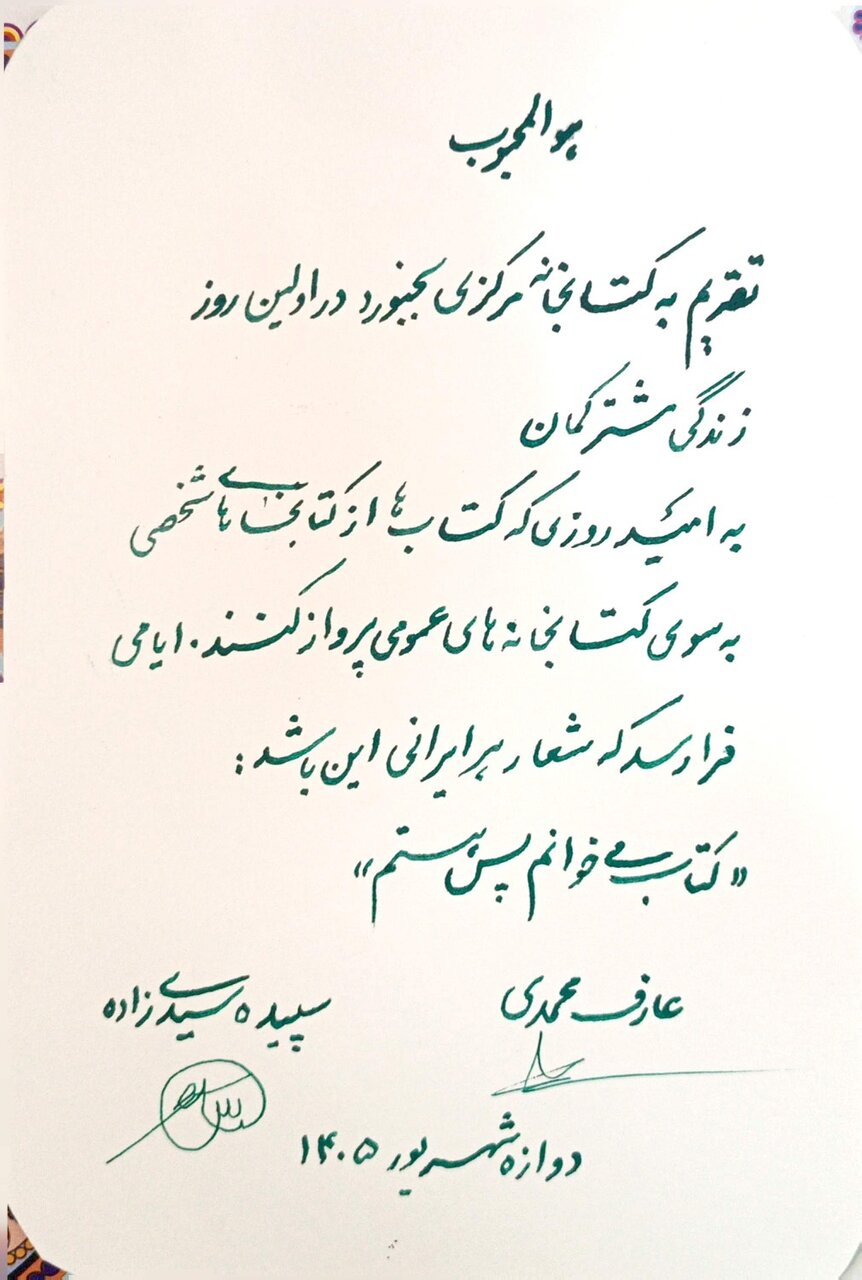 هوالمحبوب
تقدیم به کتابخانه مرکزی بجنورد در اولین روز
زندگی مشترکمان
به امید روزی که کتاب‌ها از کتابخانه‌های شخصی
به سوی کتابخانه های عمومی پرواز کنند. ایامی
فرا رسد که شعار هر ایرانی این باشد:
«کتاب می خوانم پس هستم»
عارف محمدی
سپیده سیدی زاده
دوازه شهریور ۱۴۰۵